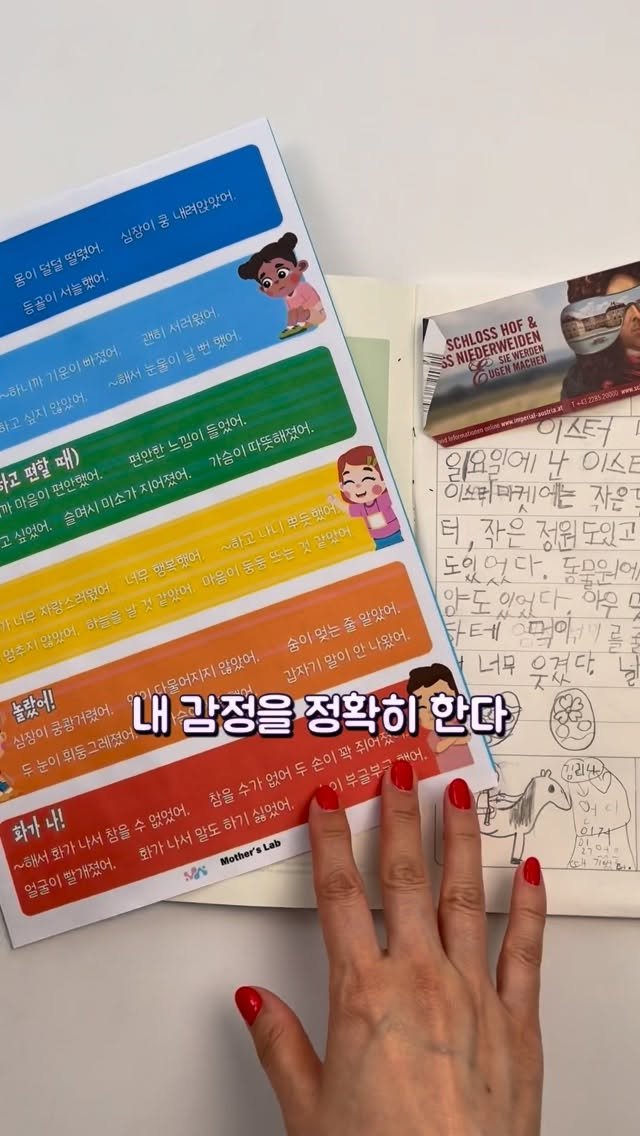 몸이 덜덜 떨렸어. 심장이 쿵 내려앉았어.
등골이 서늘했어.
~하니까 기운이 빠졌어. 괜히 서러웠어.
하고 싶지 않았어. ~해서 눈물이 날 뻔 했어.
하고 편할 때)
까 마음이 편안했어. 편안한 느낌이 들었어.
고 싶었어. 슬며시 미소가 지어졌어. 가슴이 따뜻해졌어.
가 너무 자랑스러웠어. 너무 행복했어. ~하고 나니 뿌듯했어.
멈추지 않았어. 하늘을 날 것 같았어. 마음이 둥둥 뜨는 것 같았어.
놀랐어!
심장이 쿵쾅거렸어. 다물어지지 않았어. 숨이 멎는 줄 알았어.
두 눈이 휘둥그레졌어. 갑자기 말이 안 나왔어.
내 감정을 정확히 한다
화가 나!
~해서 화가 나서 참을 수 없었어. 참을 수가 없어 두 손이 꽉 쥐어졌
얼굴이 빨개졌어. 화가 나서 말도 하기 싫었어. 이 부글부글 했어.
Mother's Lab
SCHLOSS HOF &
SS NIEDERWEIDEN
SIE WERDEN
EUGEN MACHEN
nd Informationen online www.imperial-austria.at T +43 2285 20000 www.sc
이스터
일요일에 난 이스터
이스터마켓에는 작은
터, 작은 정원도있고
도있었다. 동물원에
양도 있었다. 아우
하테
너무 웃겼다.